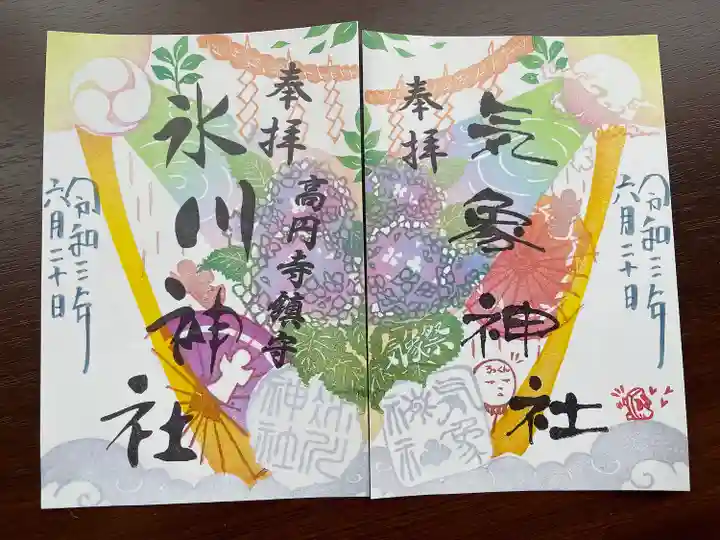 奉拝
気象神社
令和三年
六月二十日
気象祭
るっくん
気象神社
奉拝
高円寺鎮守
氷川神社
令和三年
六月二十日
氷川神社